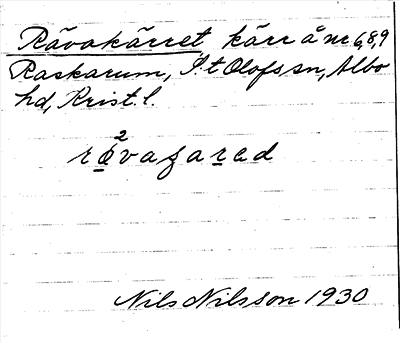 Rävakärret, kärr å nr 6,8,9
Raskarum, S:t Olofs sn, Albo
hd, Krist. l.
2
rävagarad
Nils Nilsson 1930